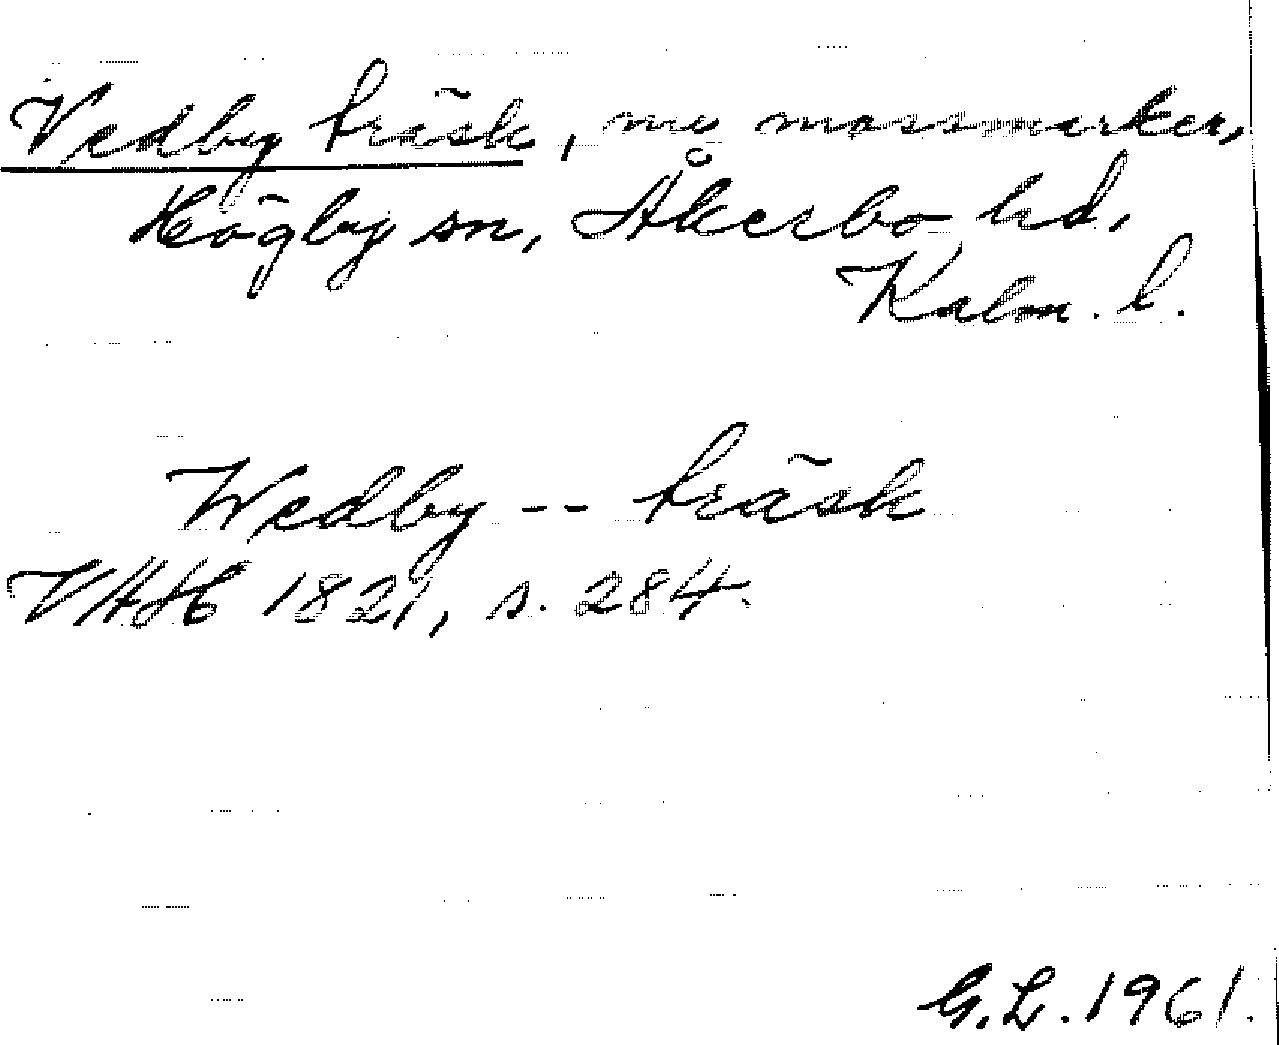 Vedby träsk, nu mossmarker,
Högby sn, Åkerbo hd,
Kalm. l.
Wedby -- träsk
VHAH 1821, s. 284.
G.L. 1961.